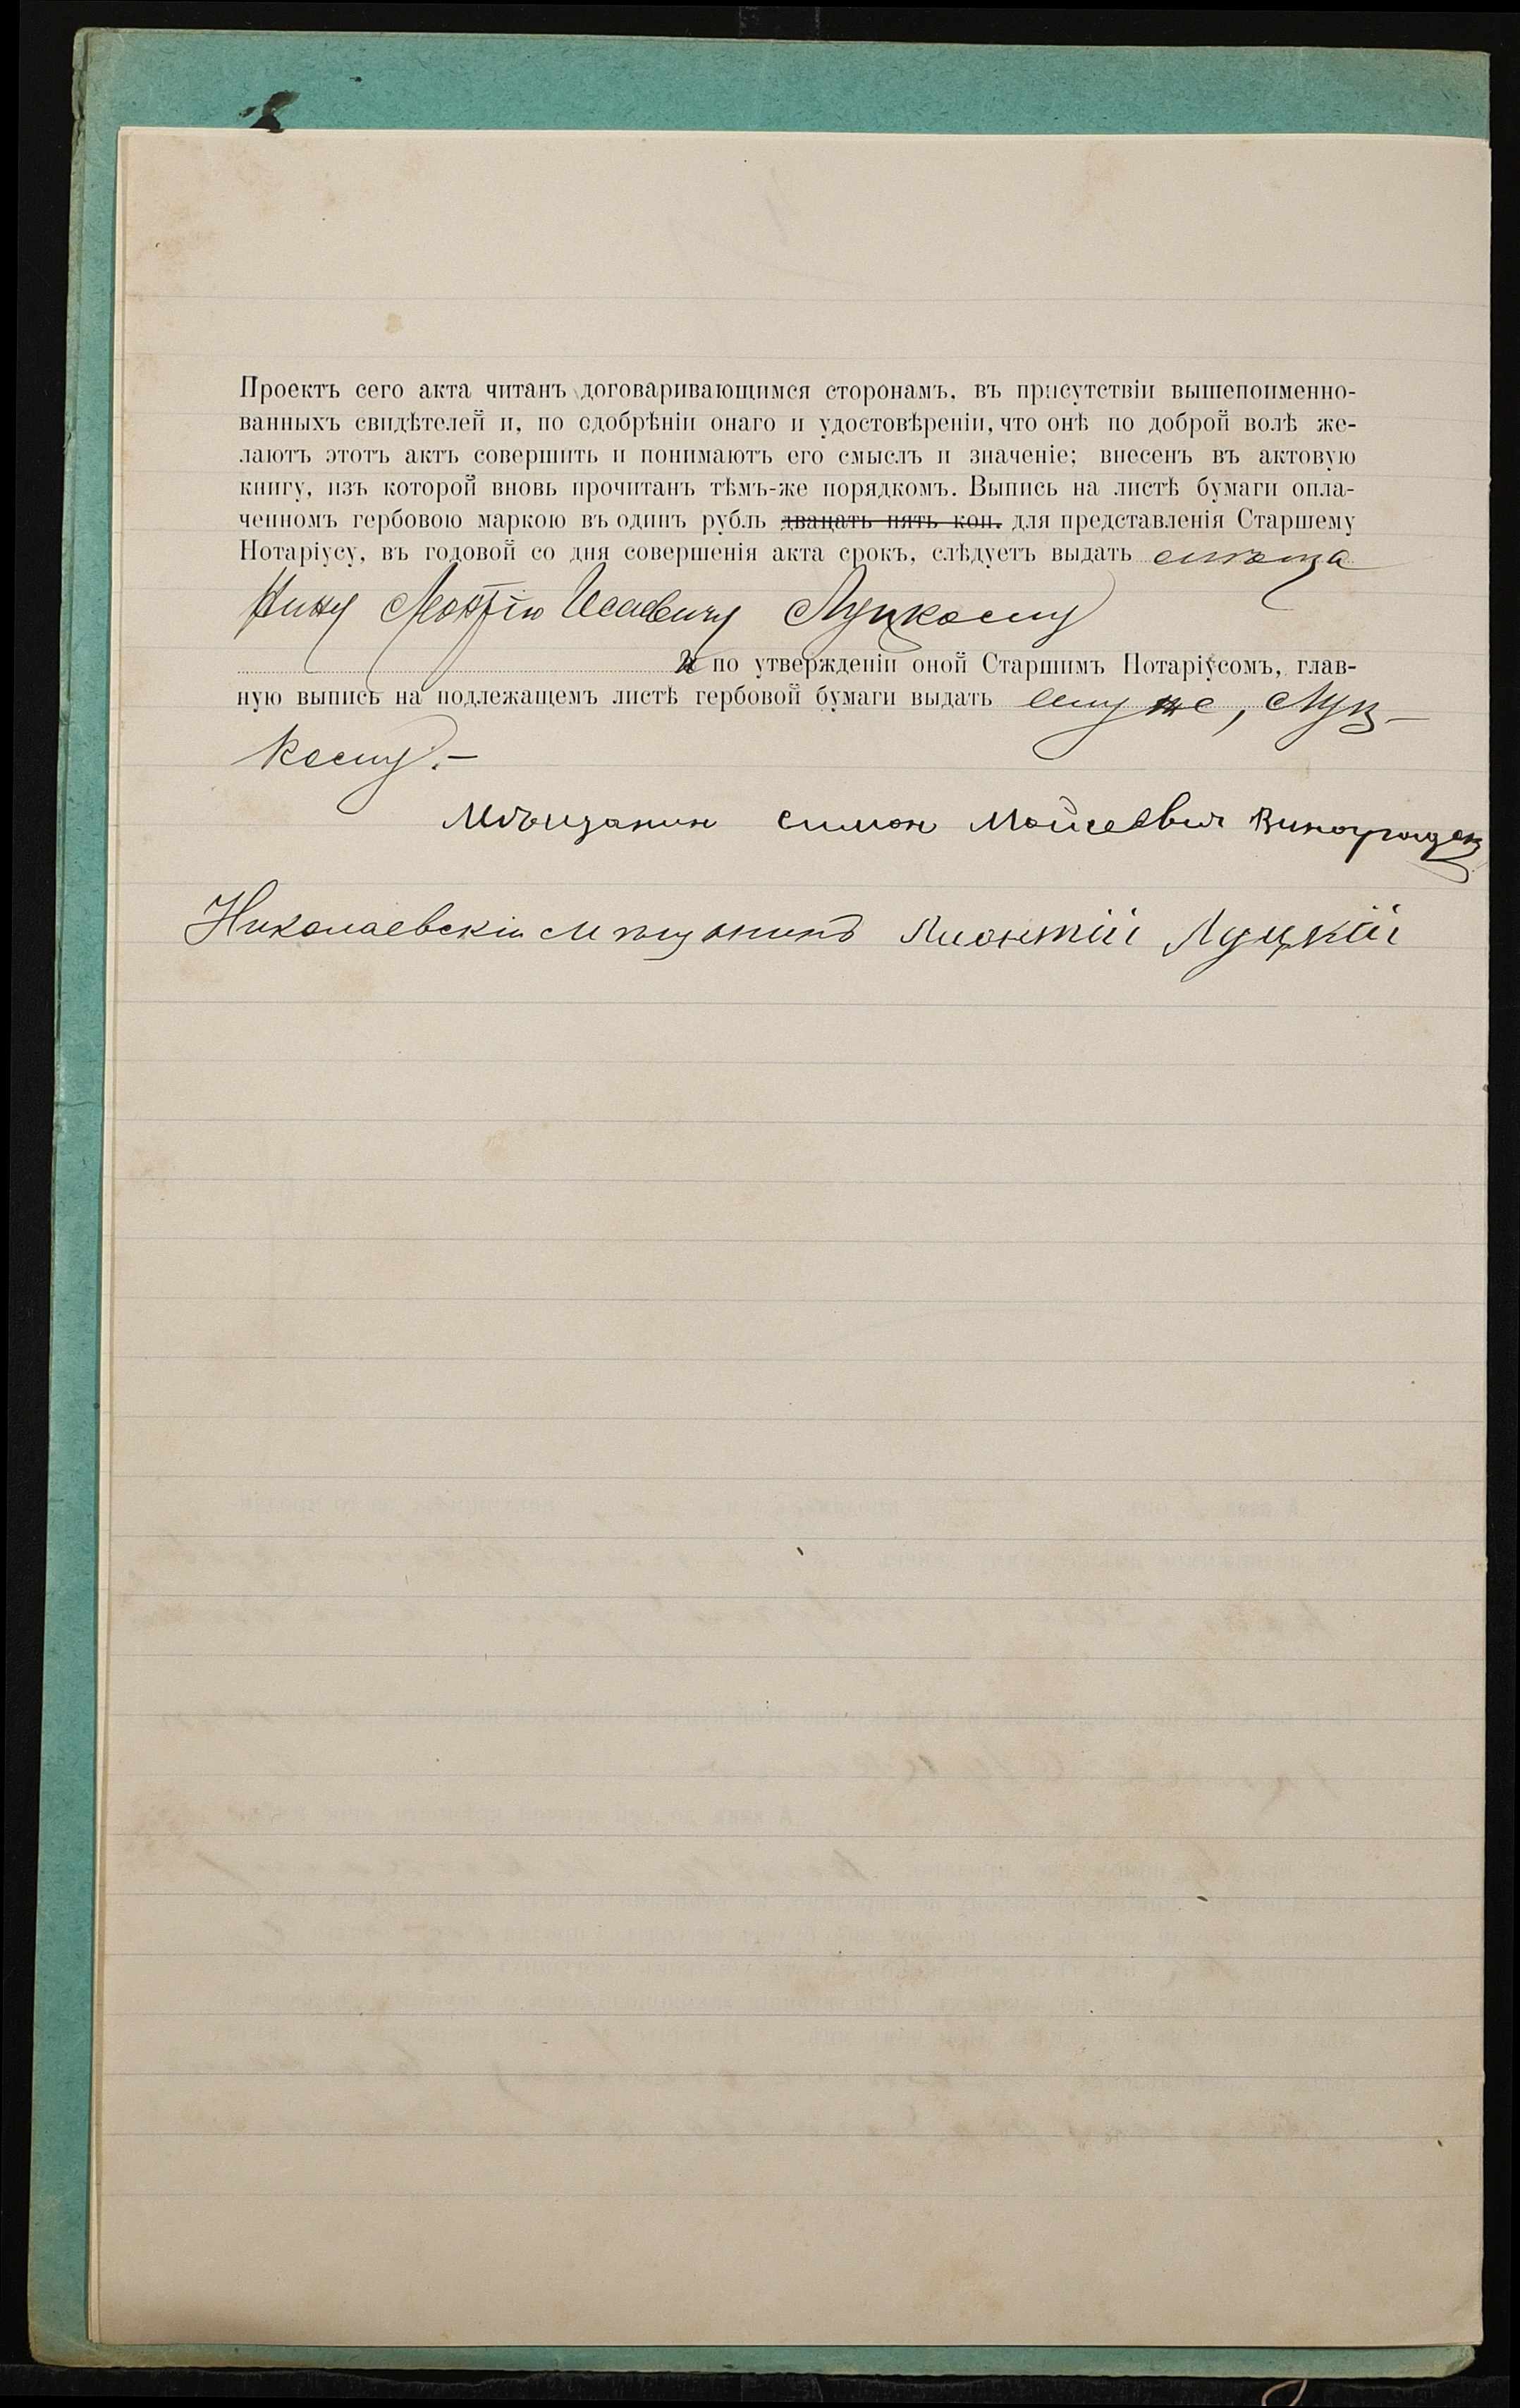 Проектъ сего акта читанъ договаривающимся сторонамъ, въ присутствіи вышепоименно-
ванныхъ свидѣтелей и, по одобрѣніи онаго и удостовѣреніи, что онѣ по доброй волѣ же-
лаютъ этотъ актъ совершить и понимаютъ его смыслъ и значеніе; внесенъ въ актовую
книгу, изъ которой вновь прочитанъ тѣмъ-же порядкомъ. Выпись на листѣ бумаги опла-
ченномъ гербовою маркою въ одинъ рубль двацать пять коп. для представленія Старшему
Нотаріусу, въ годовой со дня совершенія акта срокъ, слѣдуетъ выдать мѣща
нину Леонтію Исаевичу Луцкому
и по утвержденіи оной Старшимъ Нотаріусомъ, глав-
ную выпись на подлежащемъ листѣ гербовой бумаги выдать ему же, Луц-
кому.-
Мѣщанин Симон Мойсеевич
Николаевскій мѣщанинъ Лионтій Луцкій